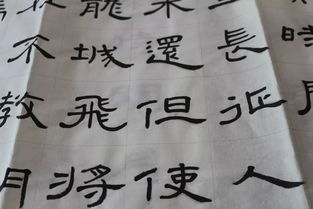 時
長征人
未還但使
龍城飛將
不教